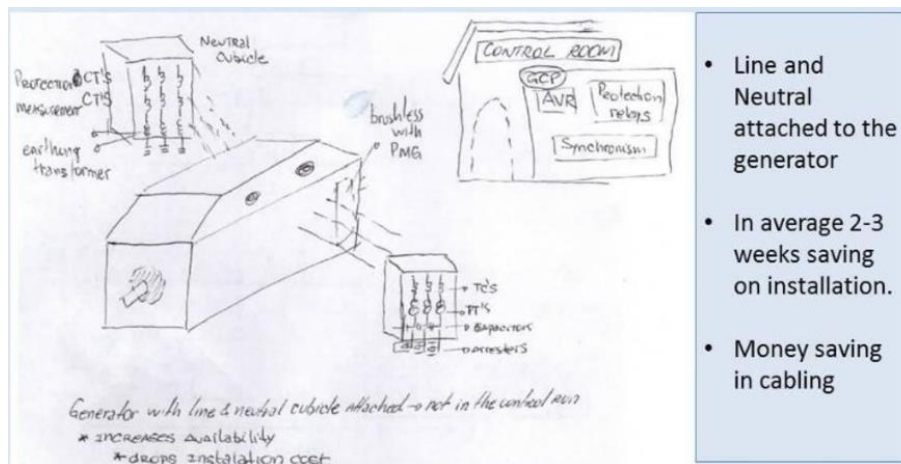 NEUTRAL
CUBICLE
PROTECTION CT'S
measurement CT'S
earthing
transformer
brushless
with
PMG
CONTROL ROOM
GCP
AVR
Protection
relays
Synchronism
TC'S
PT'S
CAPACITORS
arresters
Generator with line & neutral cubicle attached → not in the control
* INCREASES AVAILABILITY
* DROPS INSTALATION COST
• Line and
Neutral
attached to the
generator
• In average 2-3
weeks saving
on installation.
• Money saving
in cabling